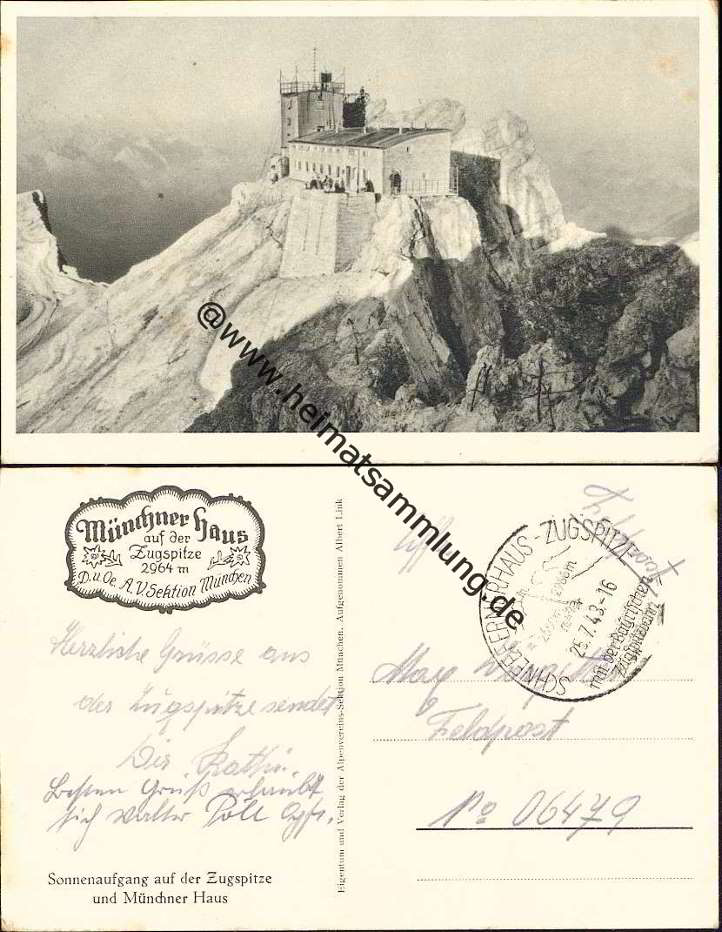 @www.heimatsammlung.de
Münchner Haus
auf der
Zugspitze
2964 m
D.u.Oe. A.V Sektion München
Herzliche Grüsse aus
der Zugspitze sendet
Die
Besten Gruß erlaubt
sich Walter
Sonnenaufgang auf der Zugspitze
und Münchner Haus
Eigentum und Verlag der Alpenvereins-Sektion München. Aufgenommen Albert Link
Feldpost
SCHNEEFERNERHAUS-ZUGSPITZE
25.7.43.-16
mit der Bayrischen
Zugspitzbahn
Feldpost
No 06479